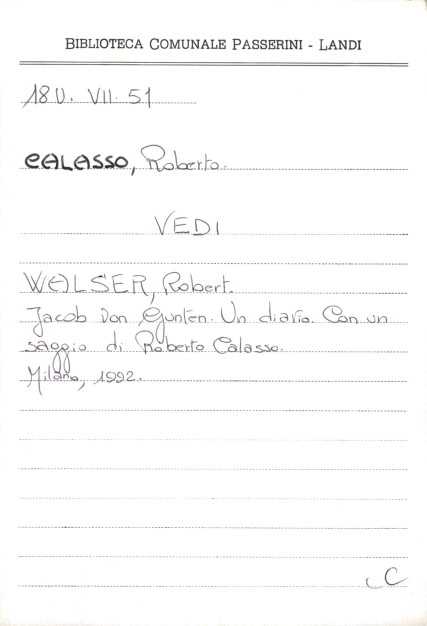 BIBLIOTECA COMUNALE PASSERINI - LANDI
18U. VII. 51
CALASSO, Roberto.
VEDI
WALSER, Robert.
Jacob Von Gunten. Un diario. Con un
saggio di Roberto Calasso.
Milano, 1992.
C